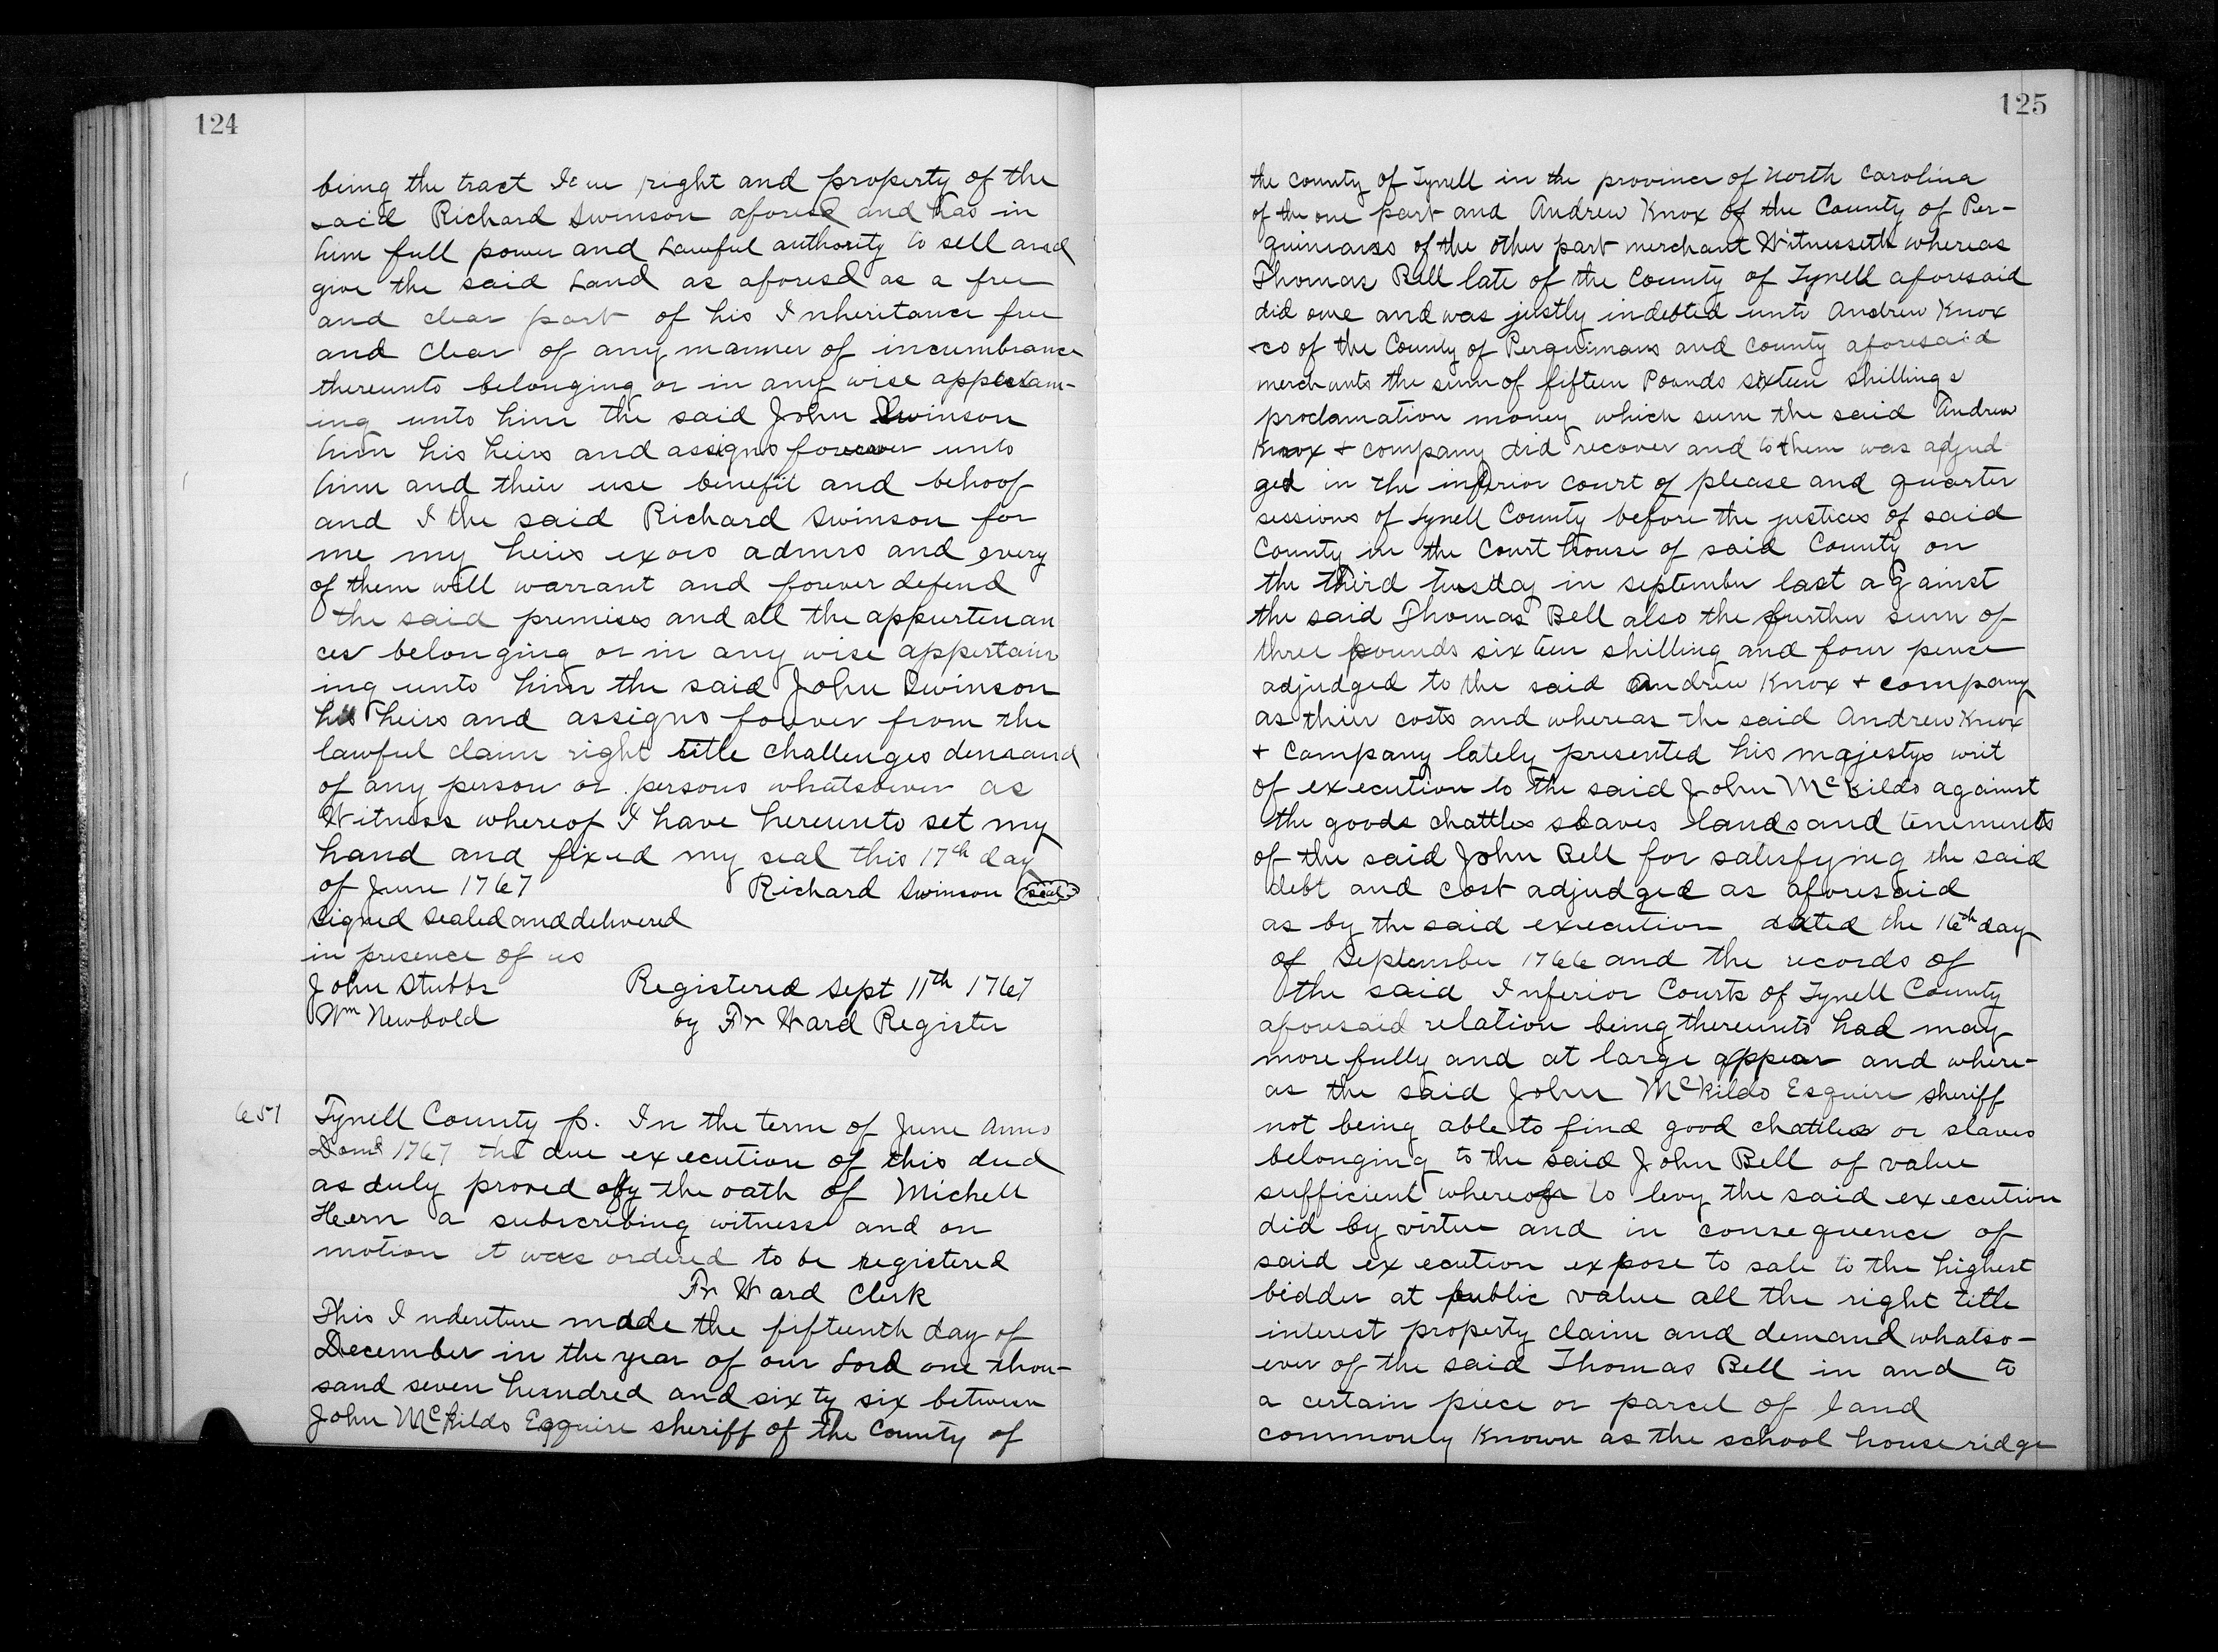 124
being the tract I am right and property of the
said Richard Swinson aforesd and has in
him full power and Lawful authority to sell and
give the said Land as aforesd as a free
and clear part of his Inheritance free
and Clear of any manner of incumbrance
thereunto belonging or in any wise appertain-
ing unto him the said John Swinson
him his heirs and assigns forever unto
him and their use benefit and behoof
and I the said Richard Swinson for
me my heirs exors admrs and every
of them will warrant and forever defend
the said premises and all the appurtenan
ces belonging or in any wise appertain
ing unto him the said John Swinson
his heirs and assigns forever from the
lawful claim right title challenges demand
of any person or persons whatsoever as
Witness whereof I have hereunto set my
hand and fixed my seal this 17th day
of June 1767 Richard Swinson seal
Signed Sealed and delivered
in presence of us
John Stubbs Registered Sept 11th 1767
Wm Newbold by Fr Ward Register
651 Tyrrell County p. In the term of June Anno
Domi 1767 the due execution of this deed
as duly proved by the oath of Michell
Heern a subscribing witness and on
motion it was ordered to be registered
Fr Ward Clerk
This Indenture made the fifteenth day of
December in the year of our Lord one thou-
sand seven hundred and sixty six between
John McKildo Esquire sheriff of the County of
125
the county of Tyrell in the province of North Carolina
of the one part and Andrew Knox of the County of Per-
quimans of the other part merchant Witnesseth whereas
Thomas Bell late of the County of Tyrell aforesaid
did owe and was justly indebted unto Andrew Knox
co of the County of Perquimans and County aforesaid
merchants the sum of fifteen Pounds sixteen shillings
proclamation money which sum the said Andrew
Knox & company did recover and to them was adjud
ged in the inferior court of please and quarter
sessions of Tyrell County before the justices of said
County in the Court house of said County on
the third tuesday in september last against
the said Thomas Bell also the further sum of
three pounds sixteen shilling and four pence
adjudged to the said Andrew Knox & company
as their costs and whereas the said Andrew Knox
& Company lately presented his majestys writ
of execution to the said John McKildo against
the goods chattles slaves lands and tenements
of the said John Bell for satisfying the said
debt and cost adjudged as aforesaid
as by the said execution dated the 16th day
of September 1766 and the records of
the said Inferior Courts of Tyrell County
aforesaid relation being thereunto had may
more fully and at large appear and where-
as the said John McKildo Esquire sheriff
not being able to find good chattles or slaves
belonging to the said John Bell of value
sufficient whereof to levy the said execution
did by virtue and in consequence of
said execution expose to sale to the highest
bidder at public value all the right title
interest property claim and demand whatso-
ever of the said Thomas Bell in and to
a certain piece or parcel of land
commonly Known as the school house ridge